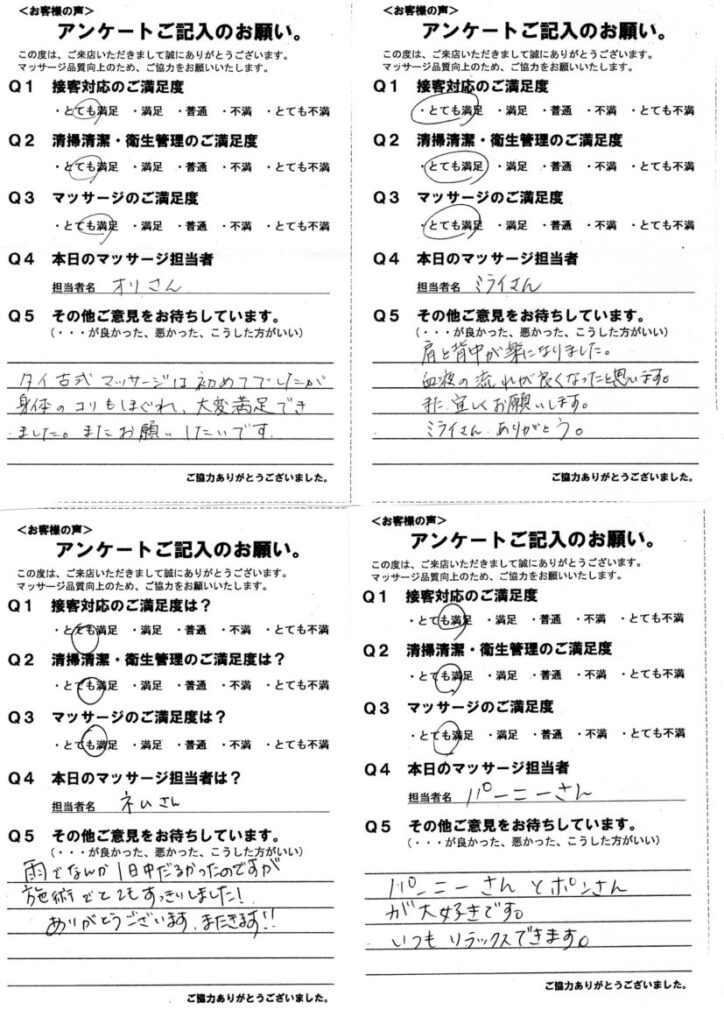 <お客様の声>
アンケートご記入のお願い。
この度は、ご来店いただきまして誠にありがとうございます。
マッサージ品質向上のため、ご協力をお願いいたします。
Q1 接客対応のご満足度
・とても満足 ・満足 ・普通 ・不満 ・とても不満
Q2 清掃清潔・衛生管理のご満足度
・とても満足 ・満足 ・普通 ・不満 ・とても不満
Q3 マッサージのご満足度
・とても満足 ・満足 ・普通 ・不満 ・とても不満
Q4 本日のマッサージ担当者
担当者名 オリさん
Q5 その他ご意見をお待ちしています。
(・・・が良かった、悪かった、こうした方がいい)
タイ古式マッサージは初めてでしたが
身体のコリもほぐれ、大変満足でき
ました。またお願いしたいです
ご協力ありがとうございました。
<お客様の声>
アンケートご記入のお願い。
この度は、ご来店いただきまして誠にありがとうございます。
マッサージ品質向上のため、ご協力をお願いいたします。
Q1 接客対応のご満足度
・とても満足 ・満足 ・普通 ・不満 ・とても不満
Q2 清掃清潔・衛生管理のご満足度
・とても満足 ・満足 ・普通 ・不満 ・とても不満
Q3 マッサージのご満足度
・とても満足 ・満足 ・普通 ・不満 ・とても不満
Q4 本日のマッサージ担当者
担当者名 ミライさん
Q5 その他ご意見をお待ちしています。
(・・・が良かった、悪かった、こうした方がいい)
肩と背中が楽になりました。
血液の流れが良くなったと思います。
また宜しくお願いします。
ミライさんありがとう。
ご協力ありがとうございました。
<お客様の声>
アンケートご記入のお願い。
この度は、ご来店いただきまして誠にありがとうございます。
マッサージ品質向上のため、ご協力をお願いいたします。
Q1 接客対応のご満足度は?
・とても満足 ・満足 ・普通 ・不満 ・とても不満
Q2 清掃清潔・衛生管理のご満足度は?
・とても満足 ・満足 ・普通 ・不満 ・とても不満
Q3 マッサージのご満足度は?
・とても満足 ・満足 ・普通 ・不満 ・とても不満
Q4 本日のマッサージ担当者は?
担当者名 さん
Q5 その他ご意見をお待ちしています。
(・・・が良かった、悪かった、こうした方がいい)
雨でなんか1日中だるかったのですが
施術でとてもすっきりしました!
ありがとうございます。またきます!!
ご協力ありがとうございました。
<お客様の声>
アンケートご記入のお願い。
この度は、ご来店いただきまして誠にありがとうございます。
マッサージ品質向上のため、ご協力をお願いいたします。
Q1 接客対応のご満足度
・とても満足 ・満足 ・普通 ・不満 ・とても不満
Q2 清掃清潔・衛生管理のご満足度
・とても満足 ・満足 ・普通 ・不満 ・とても不満
Q3 マッサージのご満足度
・とても満足 ・満足 ・普通 ・不満 ・とても不満
Q4 本日のマッサージ担当者
担当者名 パーニーさん
Q5 その他ご意見をお待ちしています。
(・・・が良かった、悪かった、こうした方がいい)
パーニーさんとポンさん
が大好きです。
いつもリラックスできます。
ご協力ありがとうございました。